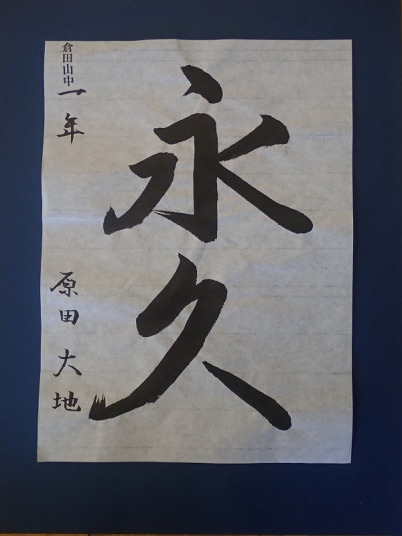 永久
倉田山中一年 原田大地